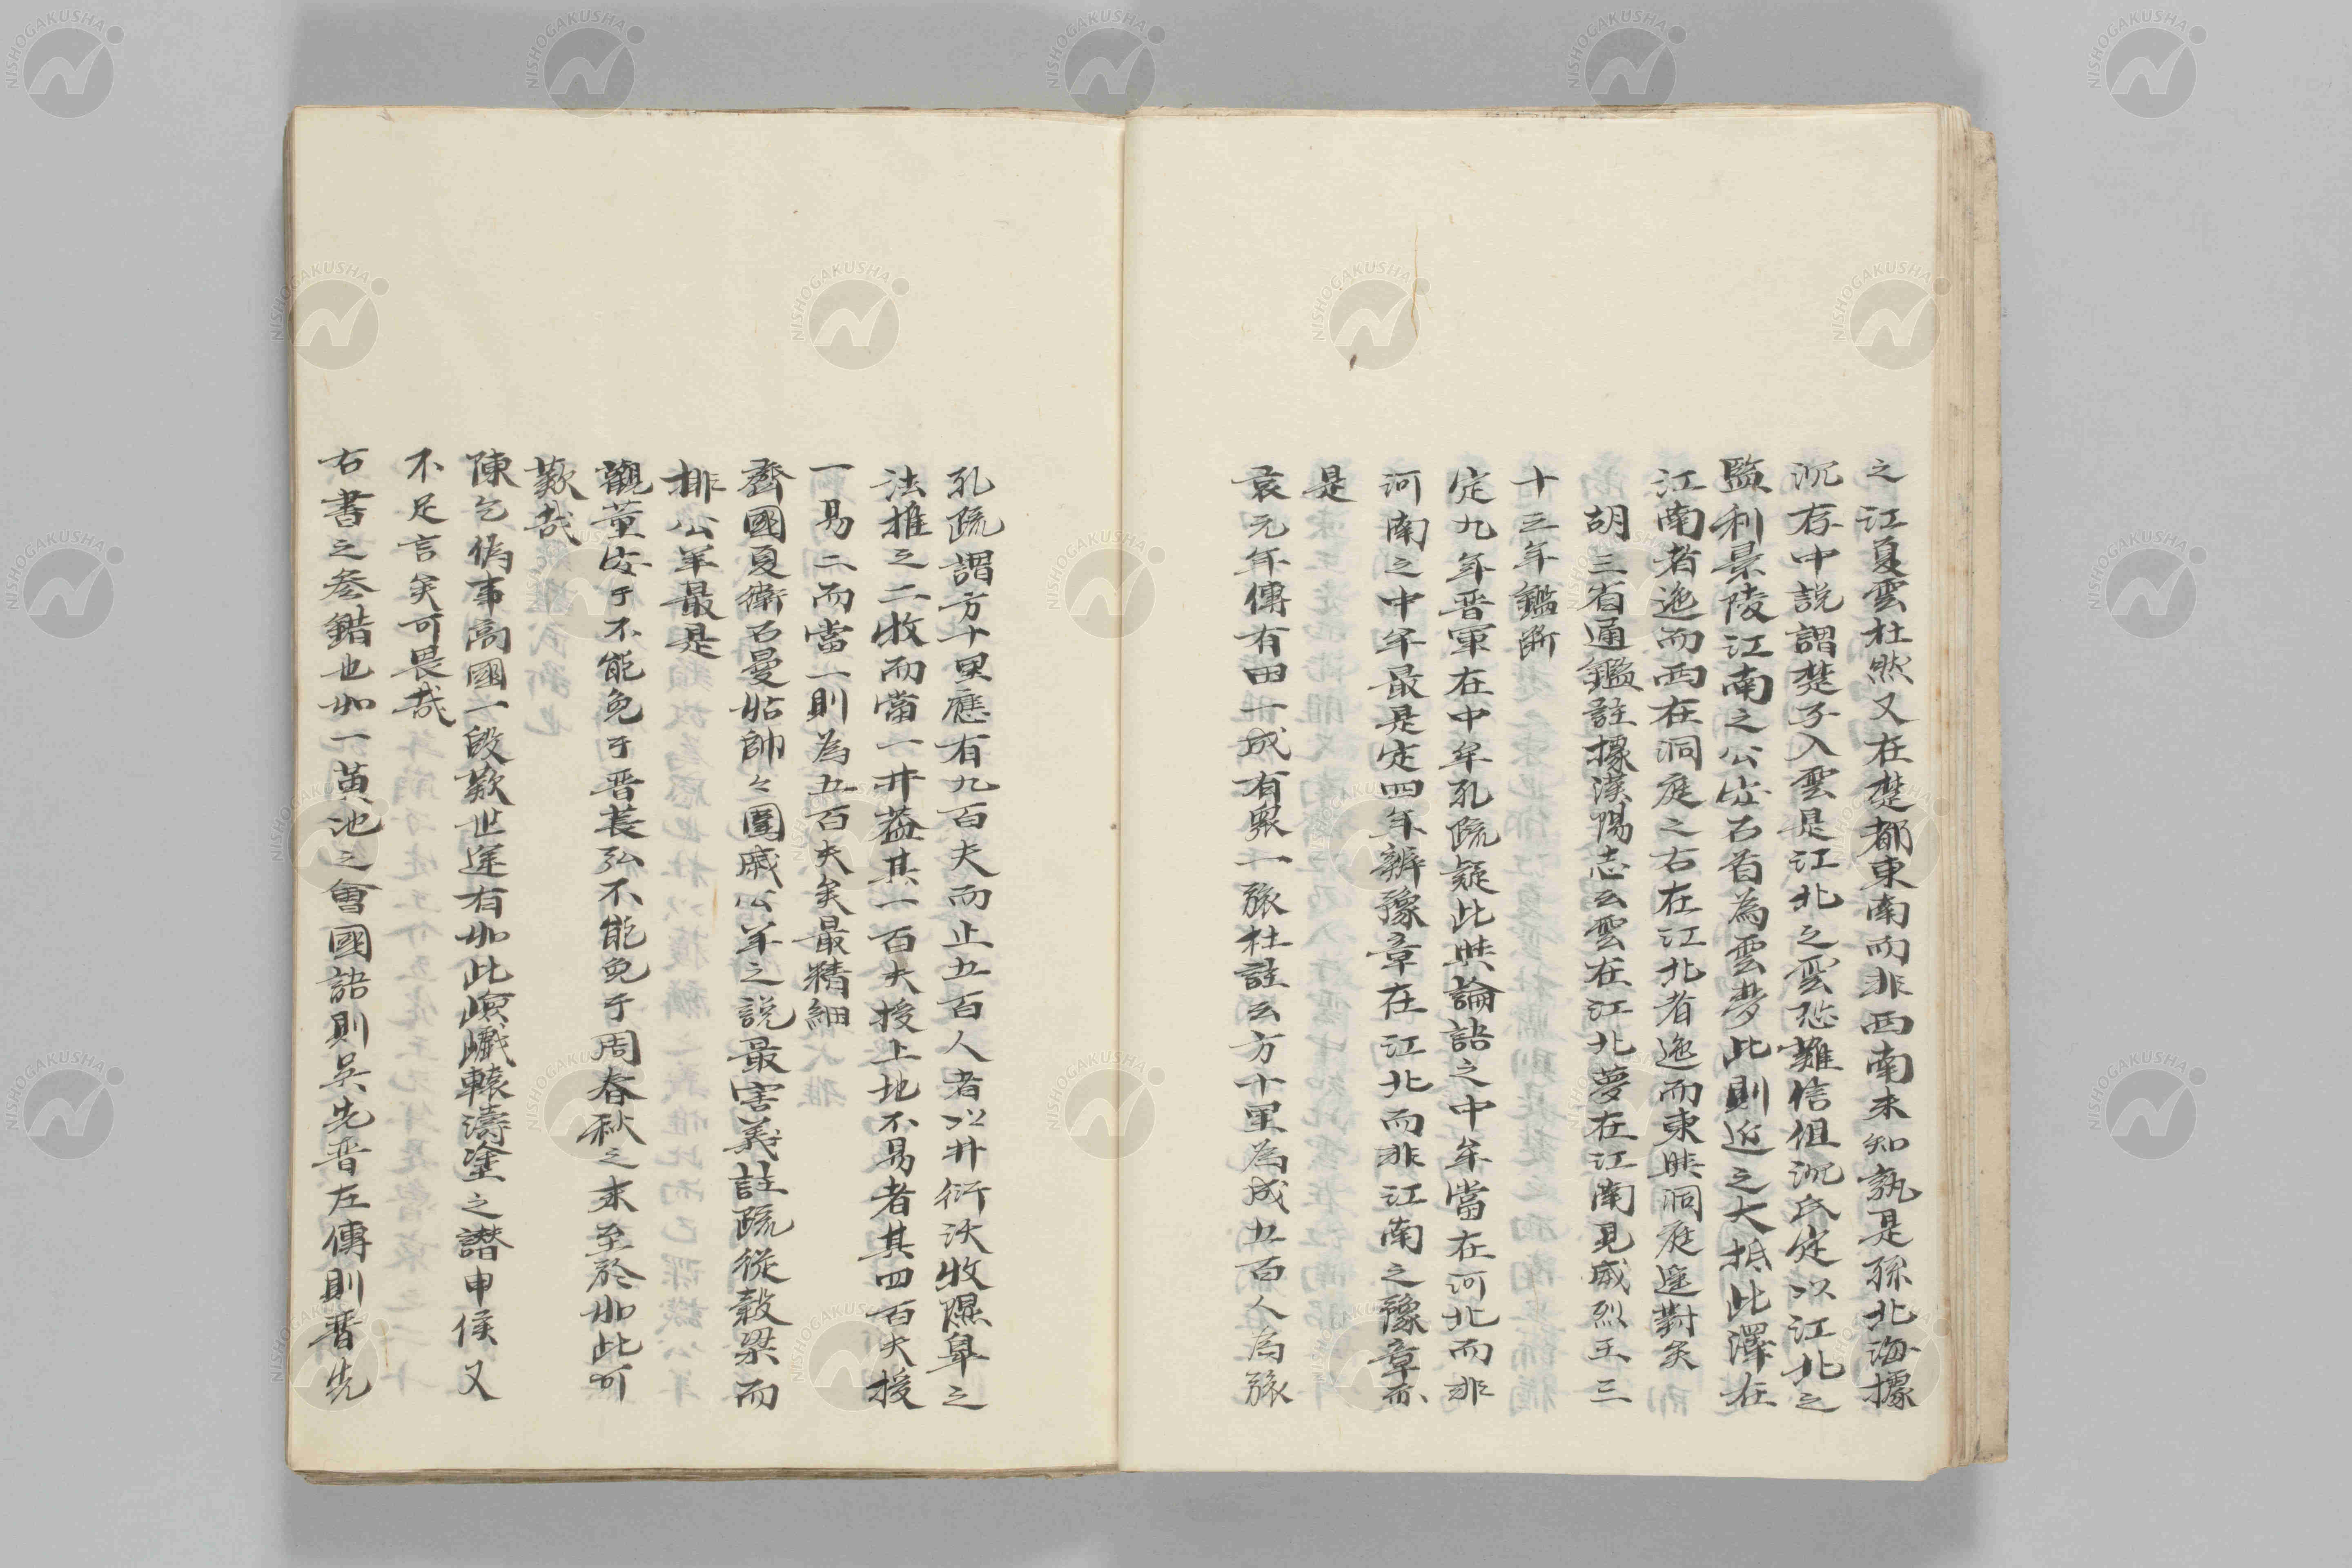 之江夏雲杜然又在楚都東南而非西南未知孰是孫北海據
沉存中説謂楚子入雲是江北之雲恐難信但沉氏定以江北之
監利景陵江南之公安石首為雲夢此則近之大抵此澤在
江南者迤而西在洞庭之右在江北者迤而東與洞庭遥對矣
胡三省通鑑註據漢陽志云雲在江北夢在江南見威烈王三
十三年鑑斷
定九年晋軍在中牟孔疏疑此與論語之中牟當在河北而非
河南之中牟最是定四年辨豫章在江北而非江南之豫章亦
是
哀元年傳有田一成有衆一旅杜註云方十里為成五百人為旅
孔疏謂方十里應有九百夫而止五百人者以井衍沃收隰臯之
法推之二收而當一井益其一百夫授上地不易者其四百夫授
一易二而當一則為五百夫矣最精細
齊國夏衛石曼姑帥々圍戚公羊之説最害義註疏從穀梁而
排公羊最是
觀董安于不能免于晋萇弘不能免于周春秋之末至於如此可
歎哉
陳乞偽事高國一段歎世途有如此嶮巇轅濤塗之譖申侯又
不足言矣可畏哉
右書之叅錯也如一黄池之會國語則吳先晋左傳則晋先
NISHOGAKUSHA